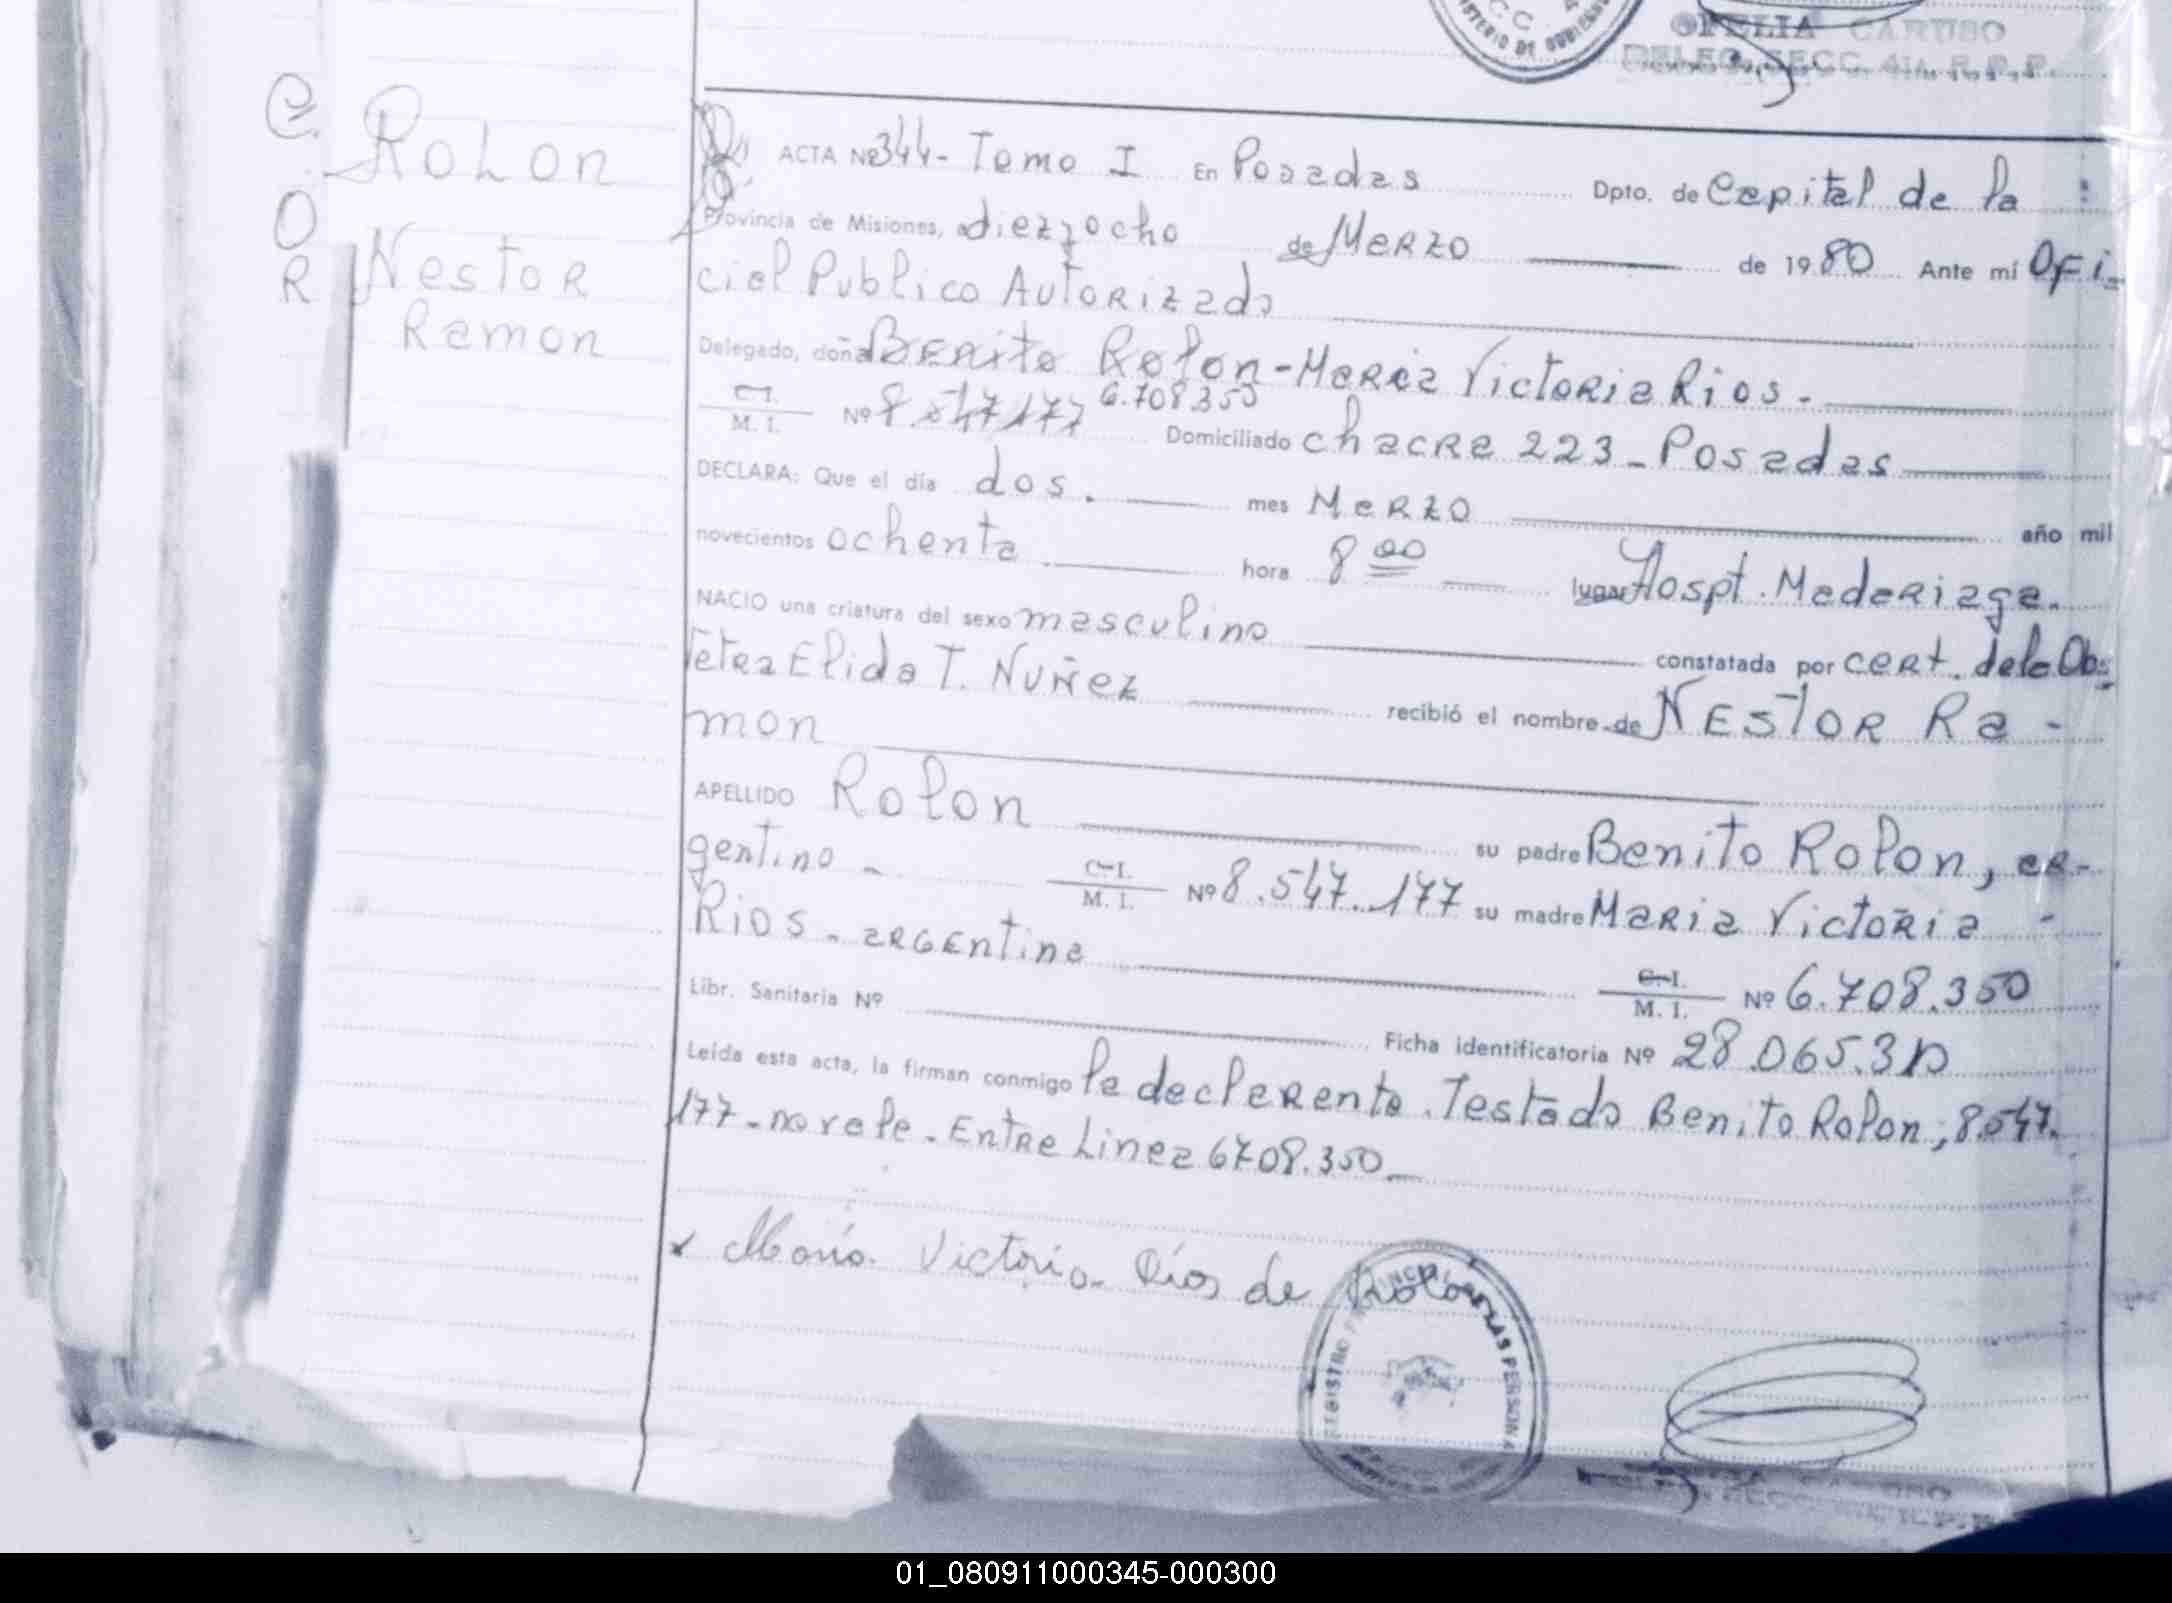 OFELIA CARUSO
DELEG. SECC. 4ta. R.P.P.
C.
O
R
Rolon
Nestor
Ramon
ACTA Nº 344- Tomo I En Posadas Dpto. de Capital de la
Provincia de Misiones, a diez y ocho de Marzo de 1980 Ante mí Ofi-
cial Publico Autorizado
Delegado, doña Benito Rolon-Maria Victoria Rios.-
C.I. / M. I. Nº 8.547177 6.708.350 Domiciliado chacra 223-Posadas
DECLARA: Que el día dos. mes Marzo año mil
novecientos ochenta hora 8 00 lugar Hospt. Madariaga.
NACIO una criatura del sexo masculino constatada por cert. de la Obs
tetra Elida T. Nuñez recibió el nombre de NESTOR Ra-
mon
APELLIDO Rolon su padre Benito Rolon, ar-
gentino - C.I. / M. I. Nº 8.547.177 su madre Maria Victoria -
Rios - argentina C.I. / M. I. Nº 6.708.350
Libr. Sanitaria Nº Ficha identificatoria Nº 28.065.3
Leída esta acta, la firman conmigo la declarante. Testado Benito Rolon, 8.547.
177-no vale. Entre Linea 6708.350
x Maria Victoria Ríos de Rolón
01_080911000345-000300